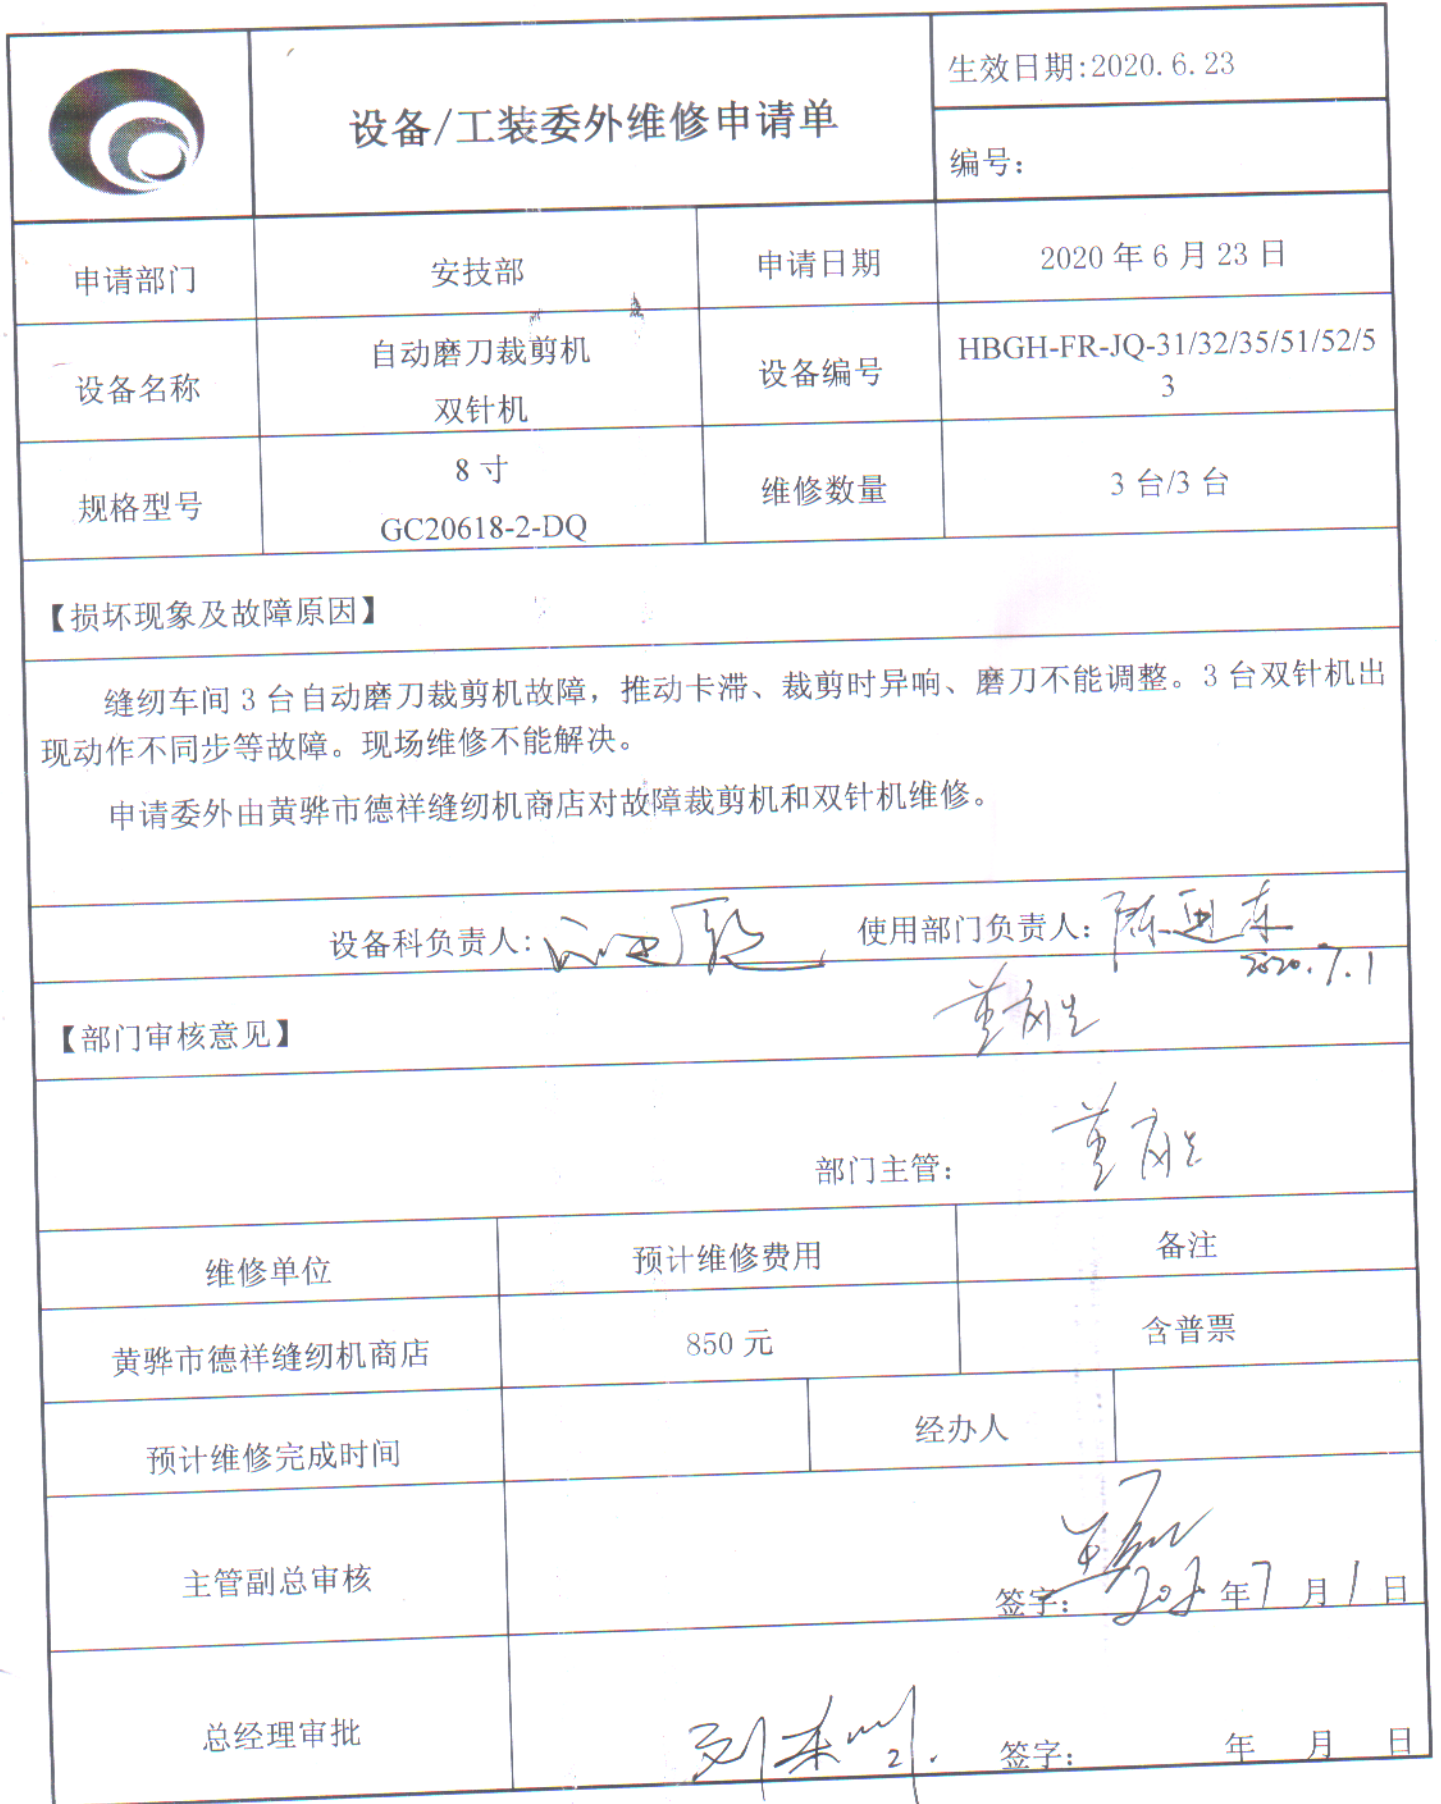 设备/工装委外维修申请单
生效日期:2020.6.23
编号：
申请部门 安技部 申请日期 2020 年 6 月 23 日
设备名称 自动磨刀裁剪机
双针机
设备编号 HBGH-FR-JQ-31/32/35/51/52/5
3
规格型号 8 寸
GC20618-2-DQ
维修数量 3 台/3 台
【损坏现象及故障原因】
缝纫车间 3 台自动磨刀裁剪机故障，推动卡滞、裁剪时异响、磨刀不能调整。3 台双针机出
现动作不同步等故障。现场维修不能解决。
申请委外由黄骅市德祥缝纫机商店对故障裁剪机和双针机维修。
设备科负责人： 使用部门负责人：
2020.7.1
【部门审核意见】
部门主管：
维修单位 预计维修费用 备注
黄骅市德祥缝纫机商店 850 元 含普票
预计维修完成时间 经办人
主管副总审核 签字： 年 7 月 1 日
总经理审批 签字： 年 月 日